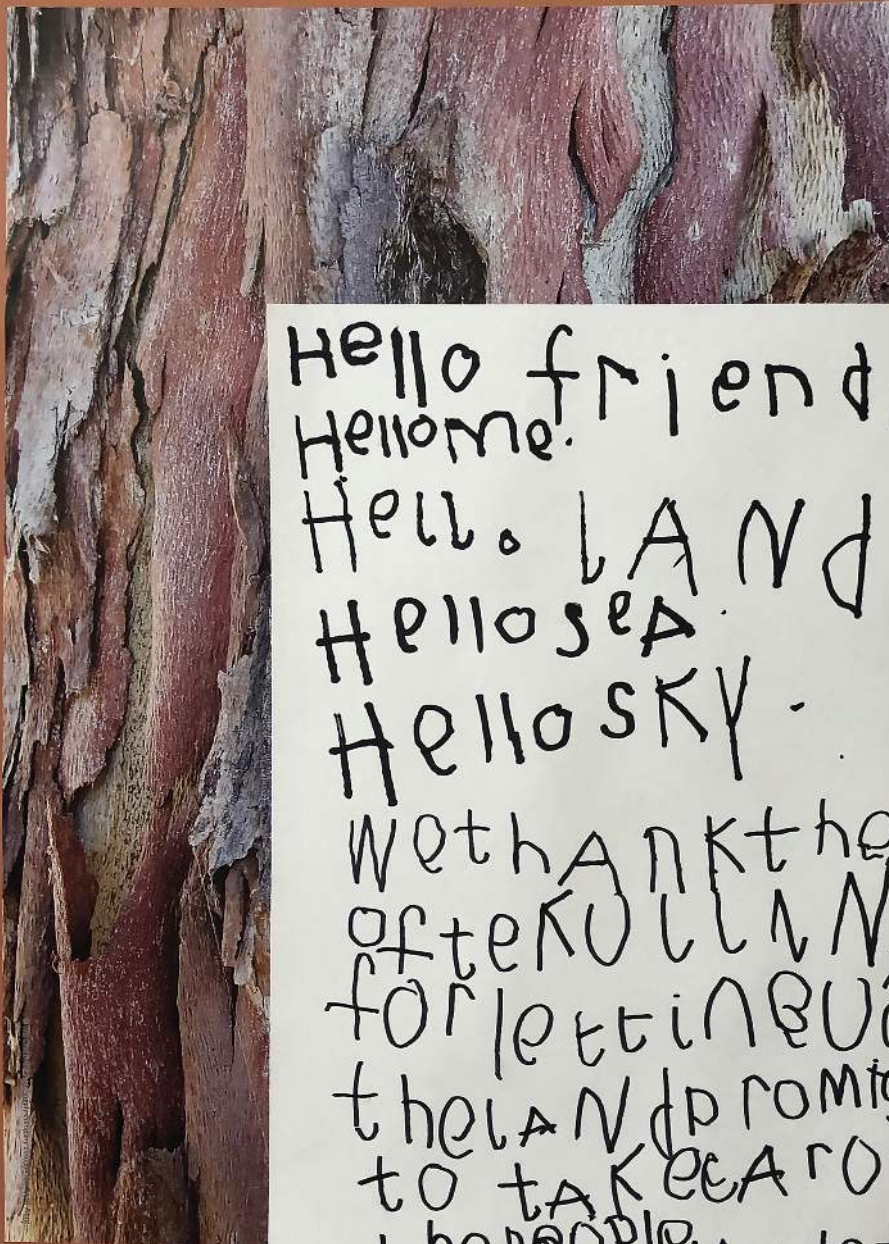 Hello friend
Hello me.
Hello lANd
Hello seA.
Hello sKY.
We thAnk the
of te KUllIN
for letting
the lANd promi
to tAKe cAro
people